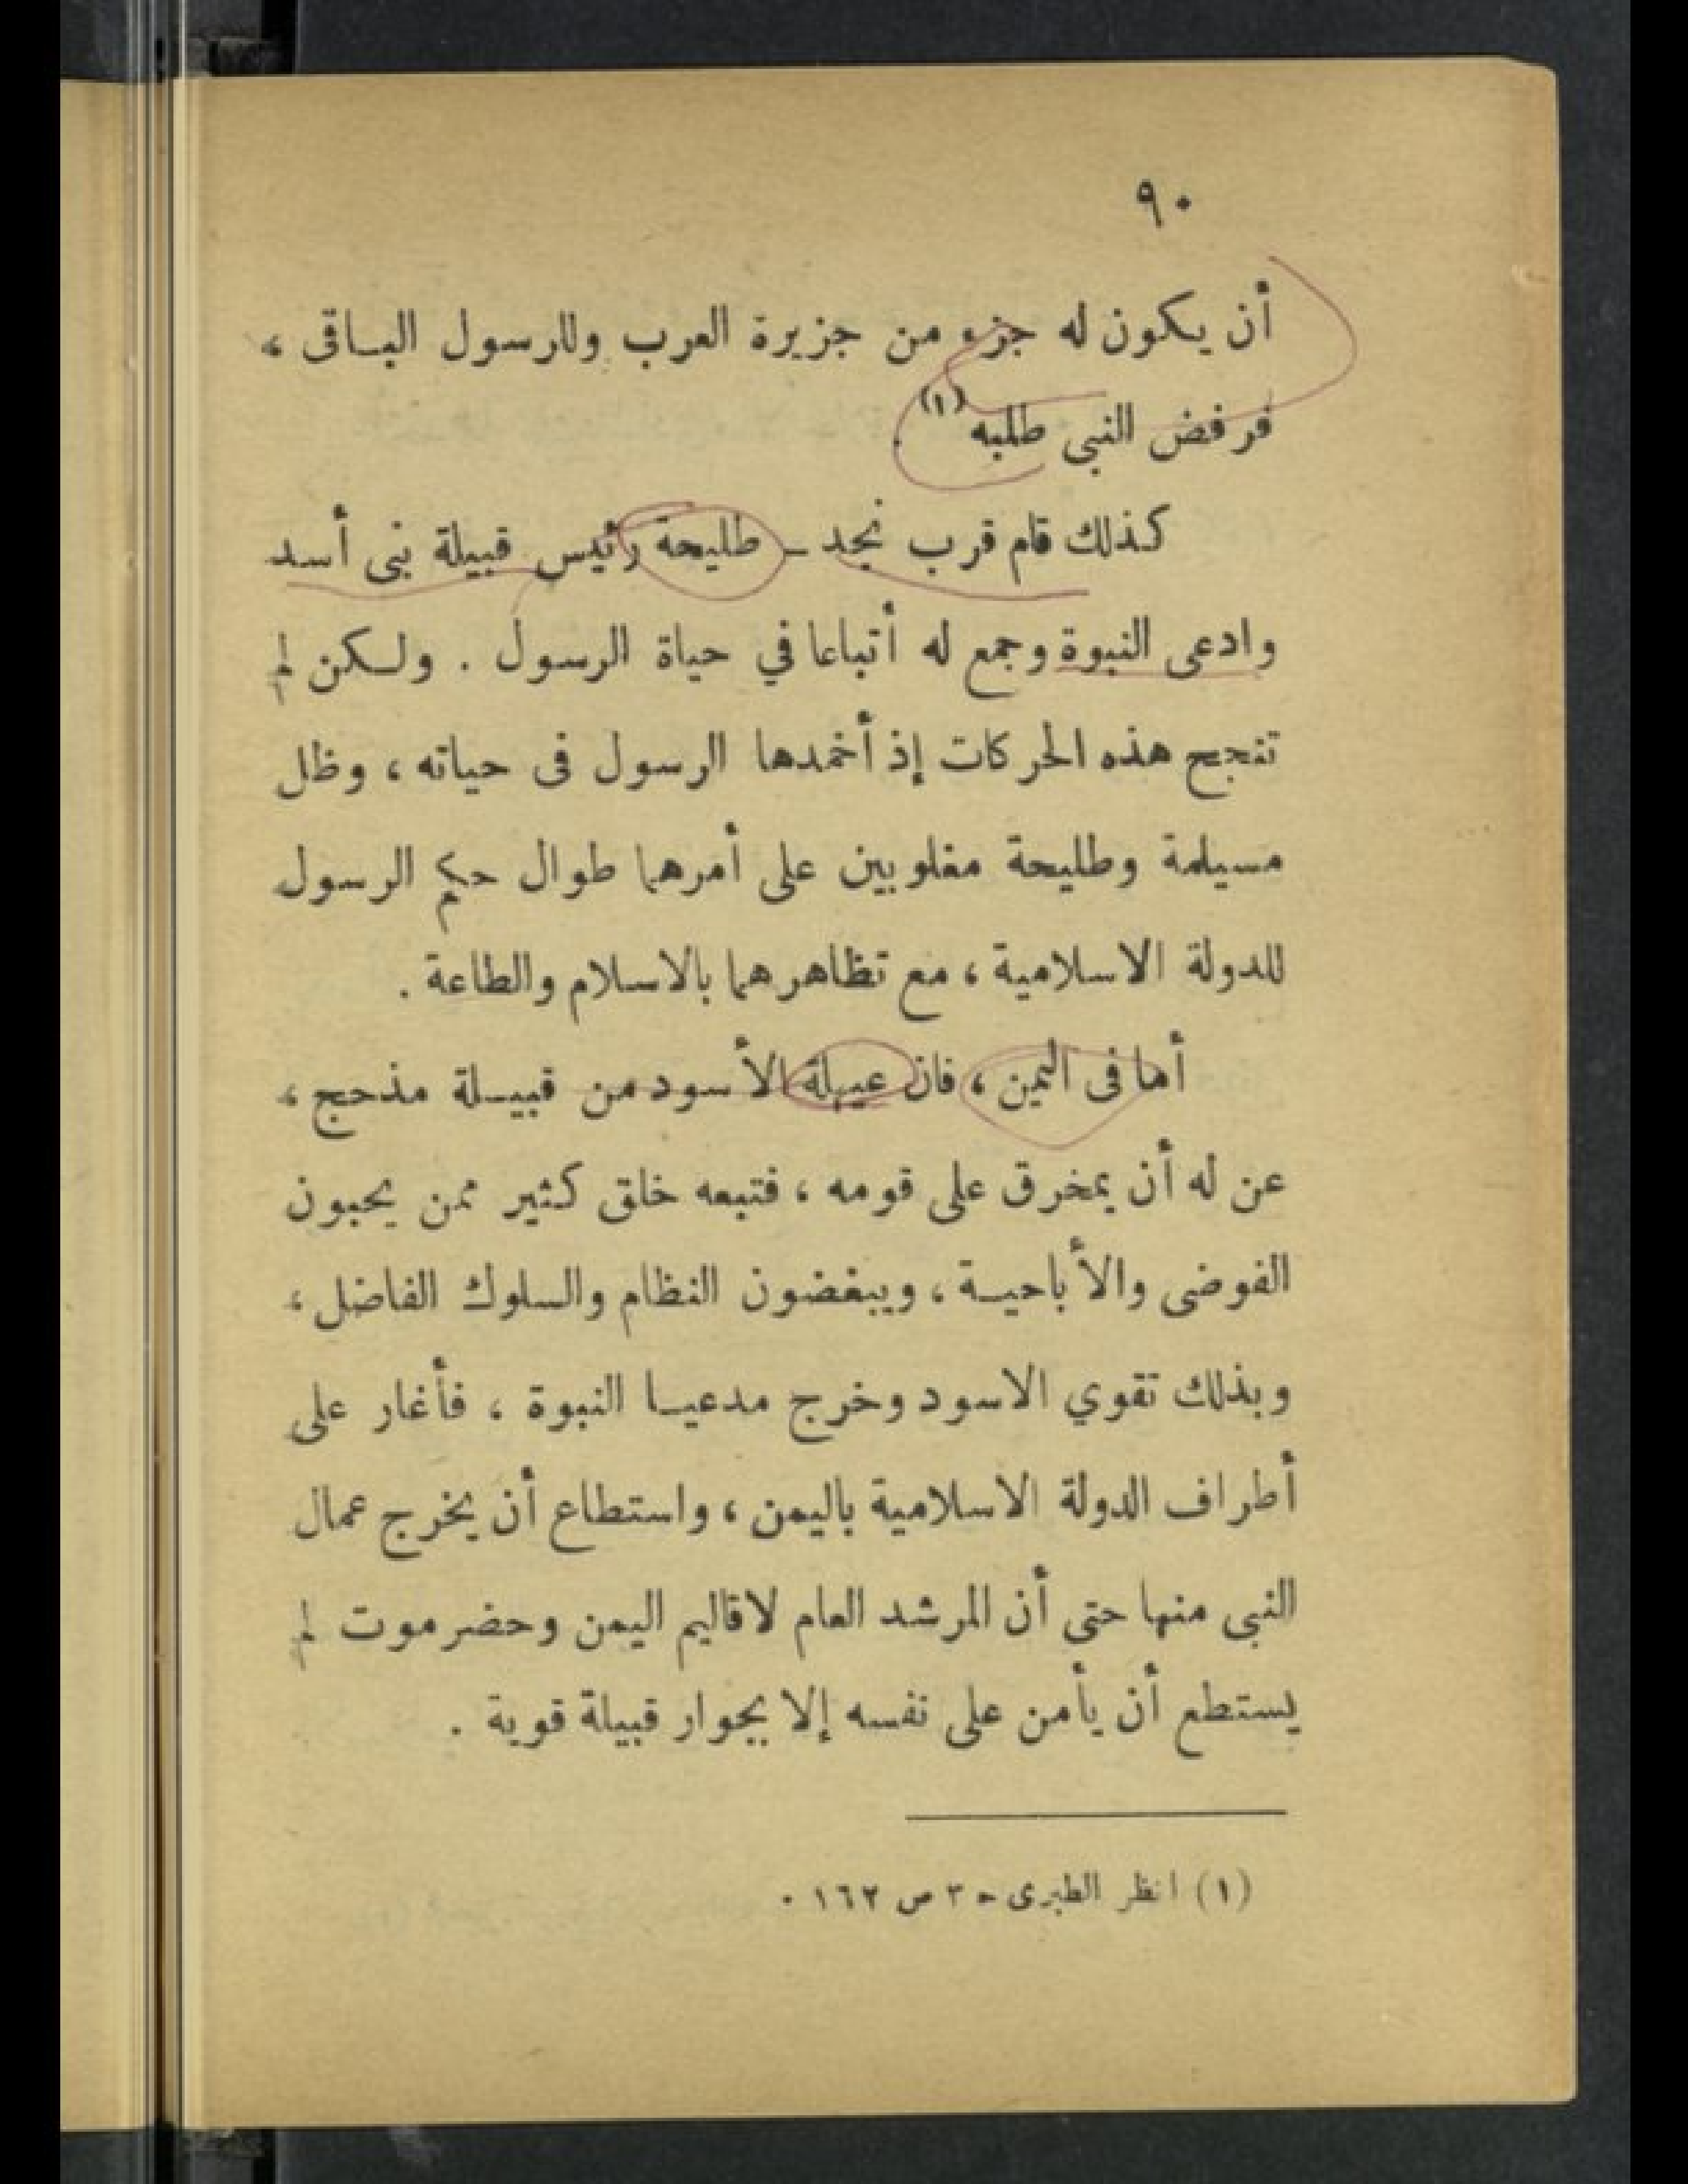 ٩٠
أن يكون له جزء من جزيرة العرب وللرسول الباقى ،
فرفض النبى طلبه (١) .
كذلك قام قرب نجد ــ طليحة رئيس قبيلة بنى أسد
وادعى النبوة وجمع له أتباعا في حياة الرسول . ولكن لم
تنجح هذه الحركات إذ أخمدها الرسول فى حياته ، وظل
مسيلمة وطليحة مغلوبين على أمرهما طوال حكم الرسول
للدولة الاسلامية ، مع تظاهرهما بالاسلام والطاعة .
أما فى اليمن ، فان عيهلة الأسود من قبيلة مذحج ،
عن له أن يمخرق على قومه ، فتبعه خلق كثير ممن يحبون
الفوضى والأباحية ، ويبغضون النظام والسلوك الفاضل ،
وبذلك تقوي الاسود وخرج مدعيا النبوة ، فأغار على
أطراف الدولة الاسلامية باليمن ، واستطاع أن يخرج عمال
النبى منها حتى أن المرشد العام لاقاليم اليمن وحضرموت لم
يستطع أن يأمن على نفسه إلا بجوار قبيلة قوية .
(١) انظر الطبرى ح ٣ ص ١٦٢ .